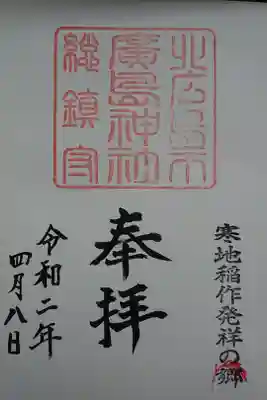 寒地稲作発祥の郷
奉拝
北広島市
廣島神社
総鎮守
令和二年
四月八日